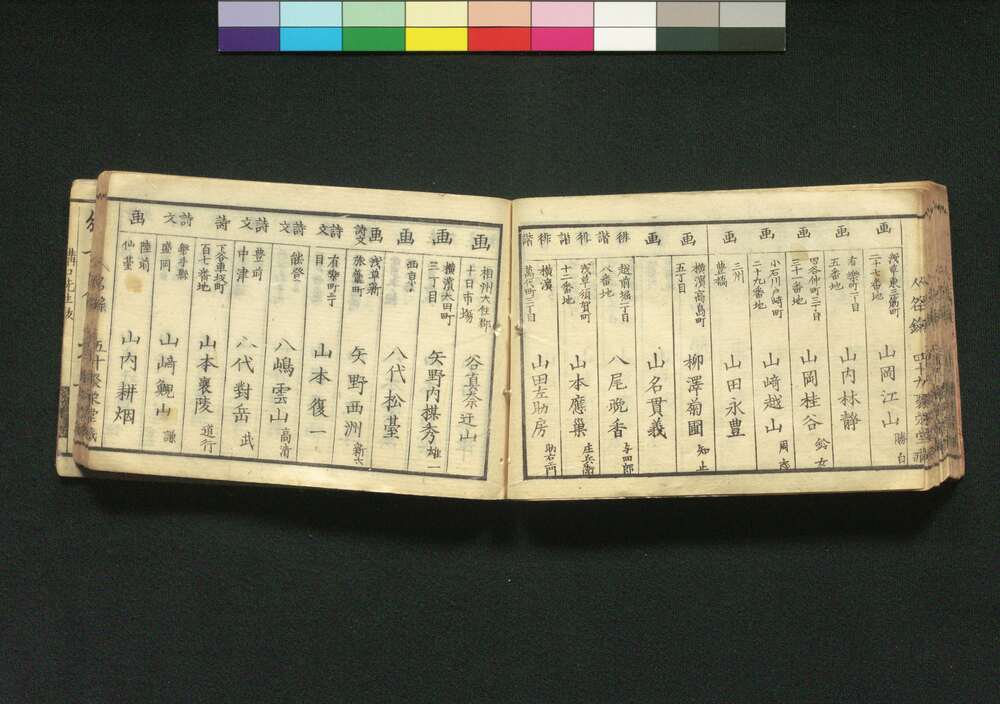 画
浅草東三筋町
二十七番地
山岡江山 勝白
画
有楽町二丁目
五番地
山内林静
画
四谷仲町三丁目
三十一番地
山岡桂谷 鉿女
画
小石川戸崎町
二十九番地
山崎越山 周
画
三州
豊橋
山田永豊
画
横濱高島町
五丁目
柳澤菊圃 知止
画
山名貫義
俳諧
越前堀二丁目
八番地
八尾晩香 与四郎
俳諧
浅草須賀町
十二番地
山本應巣 庄兵衛
俳諧
横濱
萬代町三丁目
山田左助房 助右衛門
画
相州大住郡
十日市場
谷真奈迂山
画
横濱太田町
三丁目
矢野内楳秀 雄一
画
八代松䑓
画詩文
浅草新
旅籠町
矢野西洲 新六
詩文
有楽町二丁
目
山本復一
詩文
能登
八嶋雲山 高清
詩文
豊前
中津
八代對岳 武
詩
下谷車坂町
百七番地
山本襄陵 道行
詩文
岩手縣
盛岡
山﨑鯢山 謙
画
陸前
仙䑓
山内耕烟